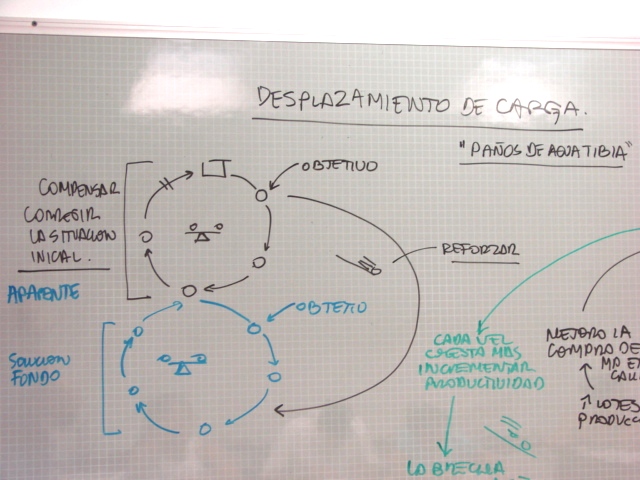 DESPLAZAMIENTO DE CARGA.
"PAÑOS DE AGUA TIBIA"
OBJETIVO
COMPENSAR
CORREGIR
LA SITUACION
INICIAL.
REFORZAR
APARENTE
OBJETIVO
SOLUCION
FONDO
CADA VEZ
CUESTA MAS
INCREMENTAR
PRODUCTIVIDAD
LA BRECHA
MEJORO LA
COMPRA DE
MP E
CALI
↑ LOTES
PRODUCC